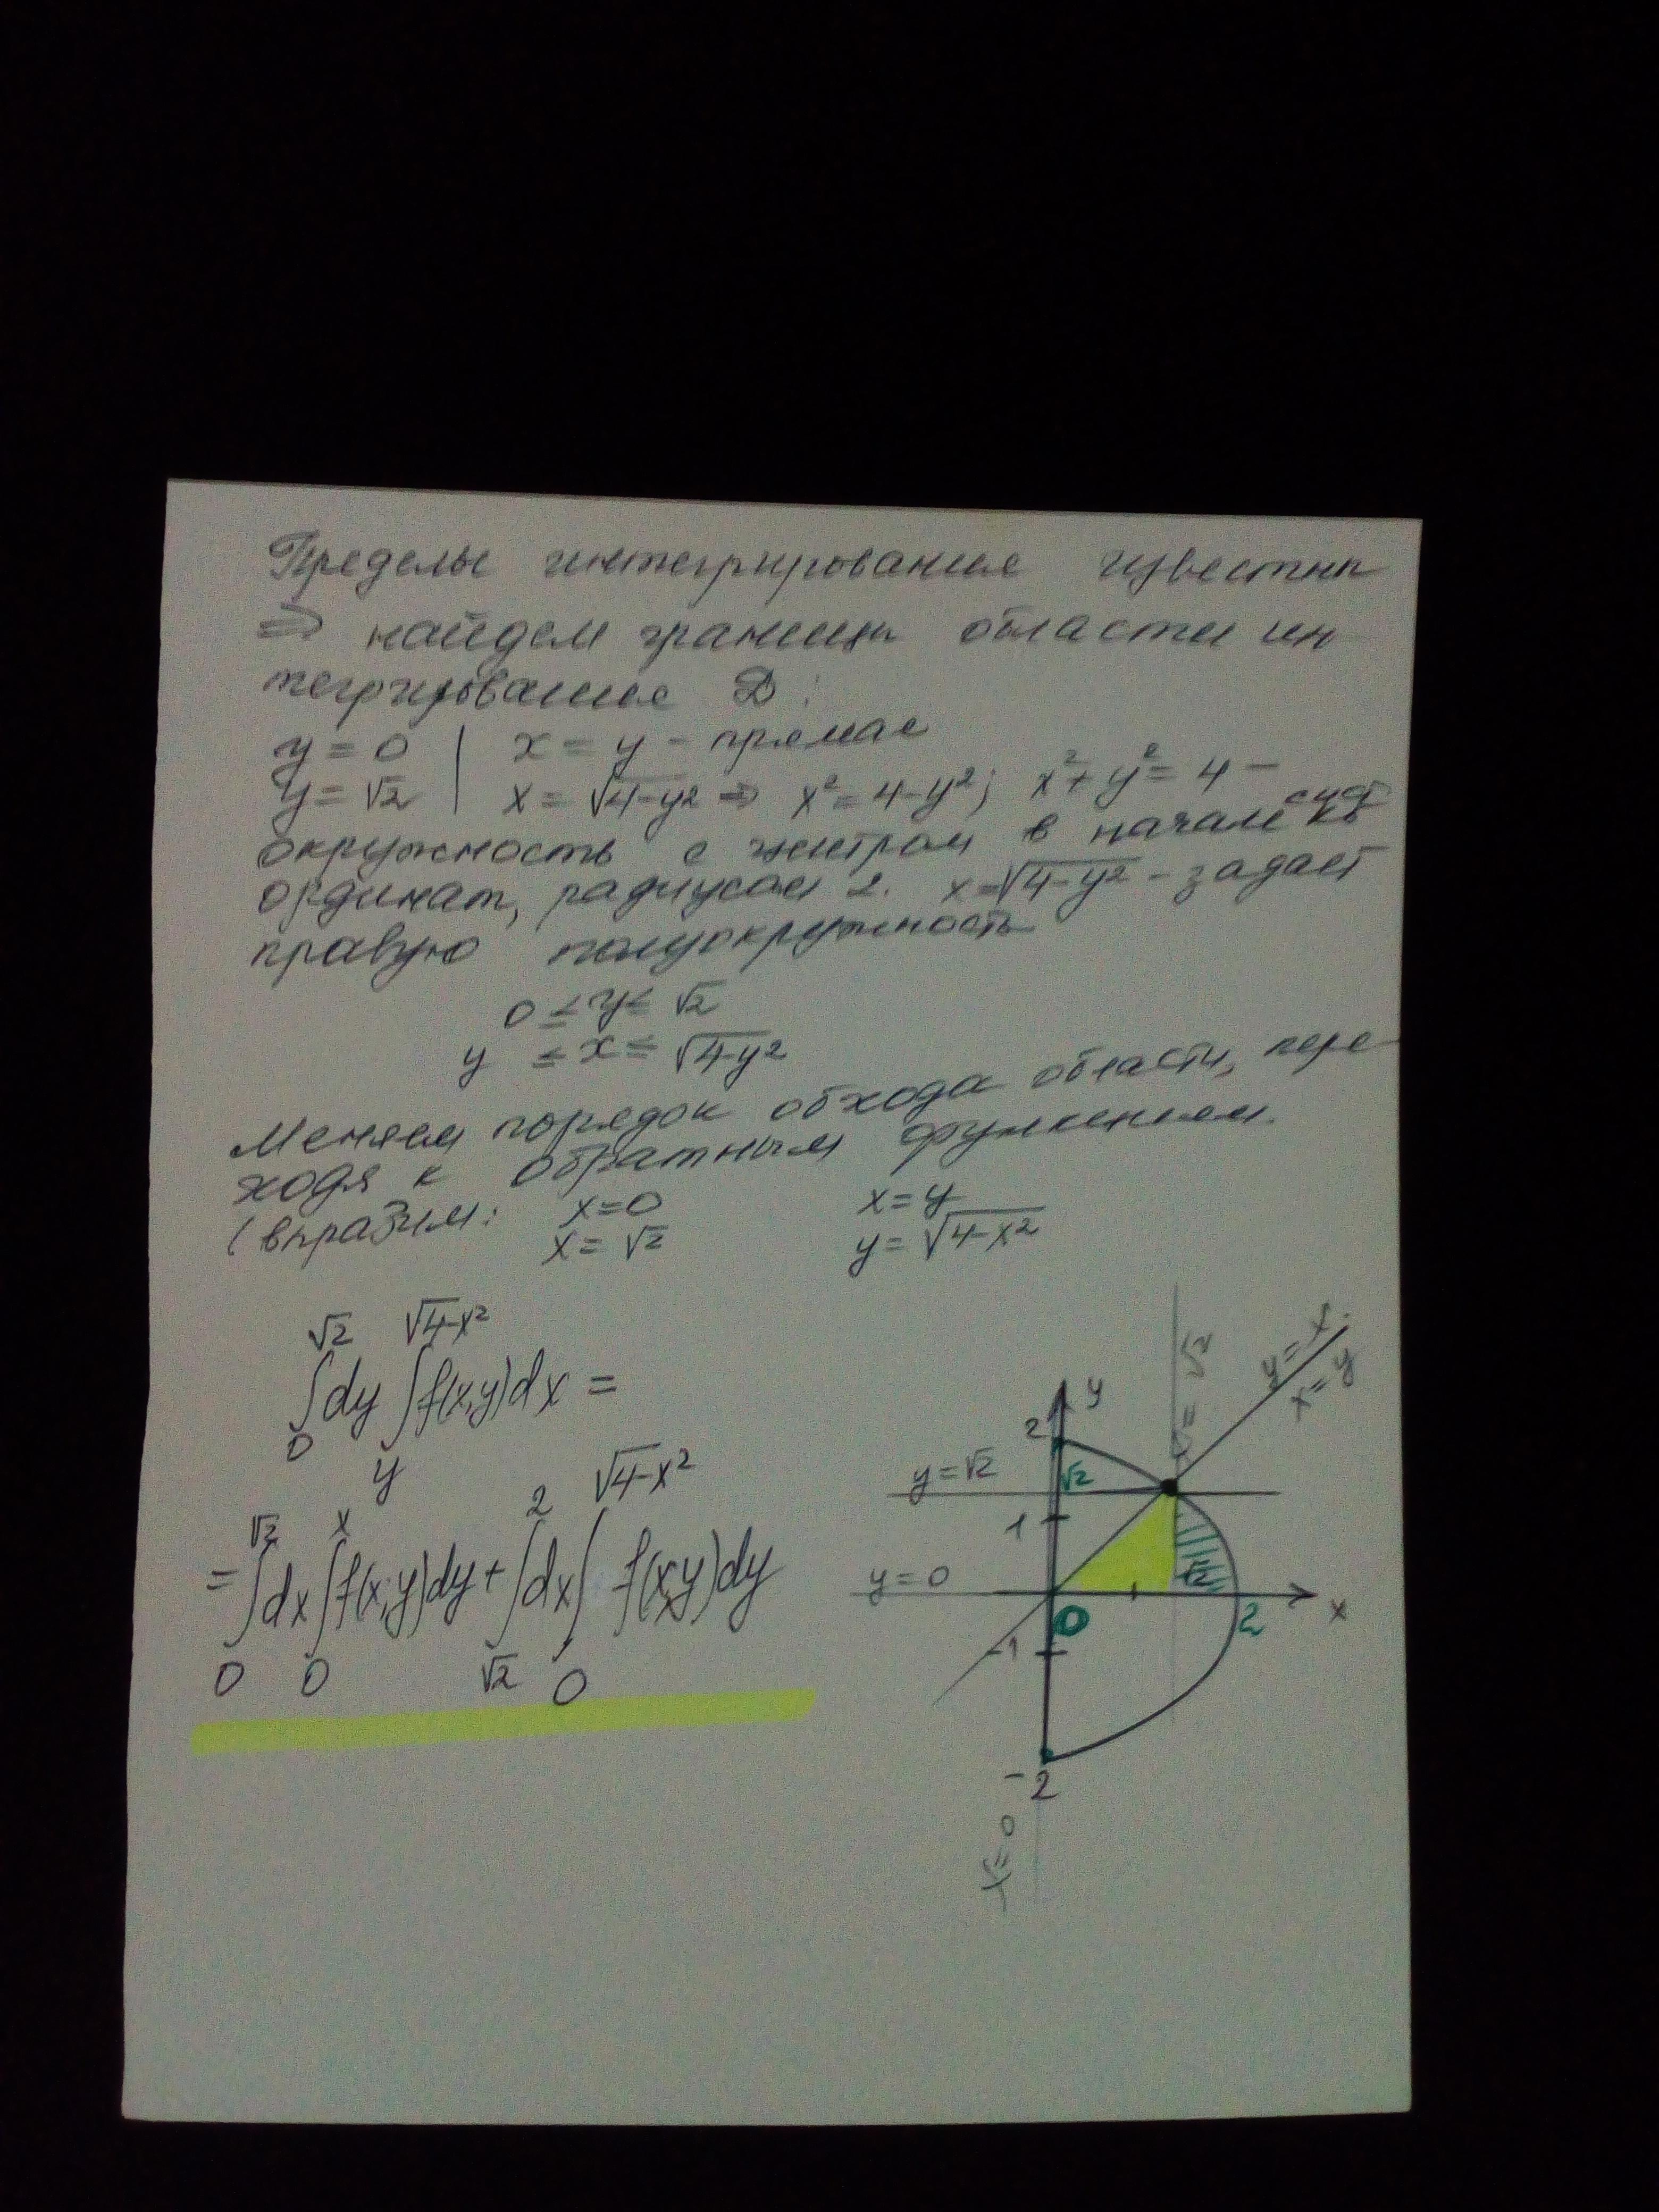 Пределы интегрирования известны
⇒ найдем границы области ин
тегрирования D:
y = 0 | x = y - прямая
y = √2 | x = √4-y2 ⇒ x² = 4-y²; x²+y²= 4 -
окружность с центром в начале
ординат, радиусом 2. x=√4-y² - задает
правую полуокружность
0 ≤ y ≤ √2
y ≤ x ≤ √4-y2
Меняем порядок обхода области, пере-
ходя к обратным функциям.
(выразим: x=0 x=y
x= √2 y= √4-x²
√2 √4-x²
∫dy ∫f(x,y)dx =
0 y
√2 x 2 √4-x²
=∫dx∫f(x,y)dy+∫dx∫ f(x,y)dy
0 0 √2 0
y = x
x=y
x= √2
y
2
y=√2
√2
1
y=0
√2
0
2
x
-1
-2
x=0